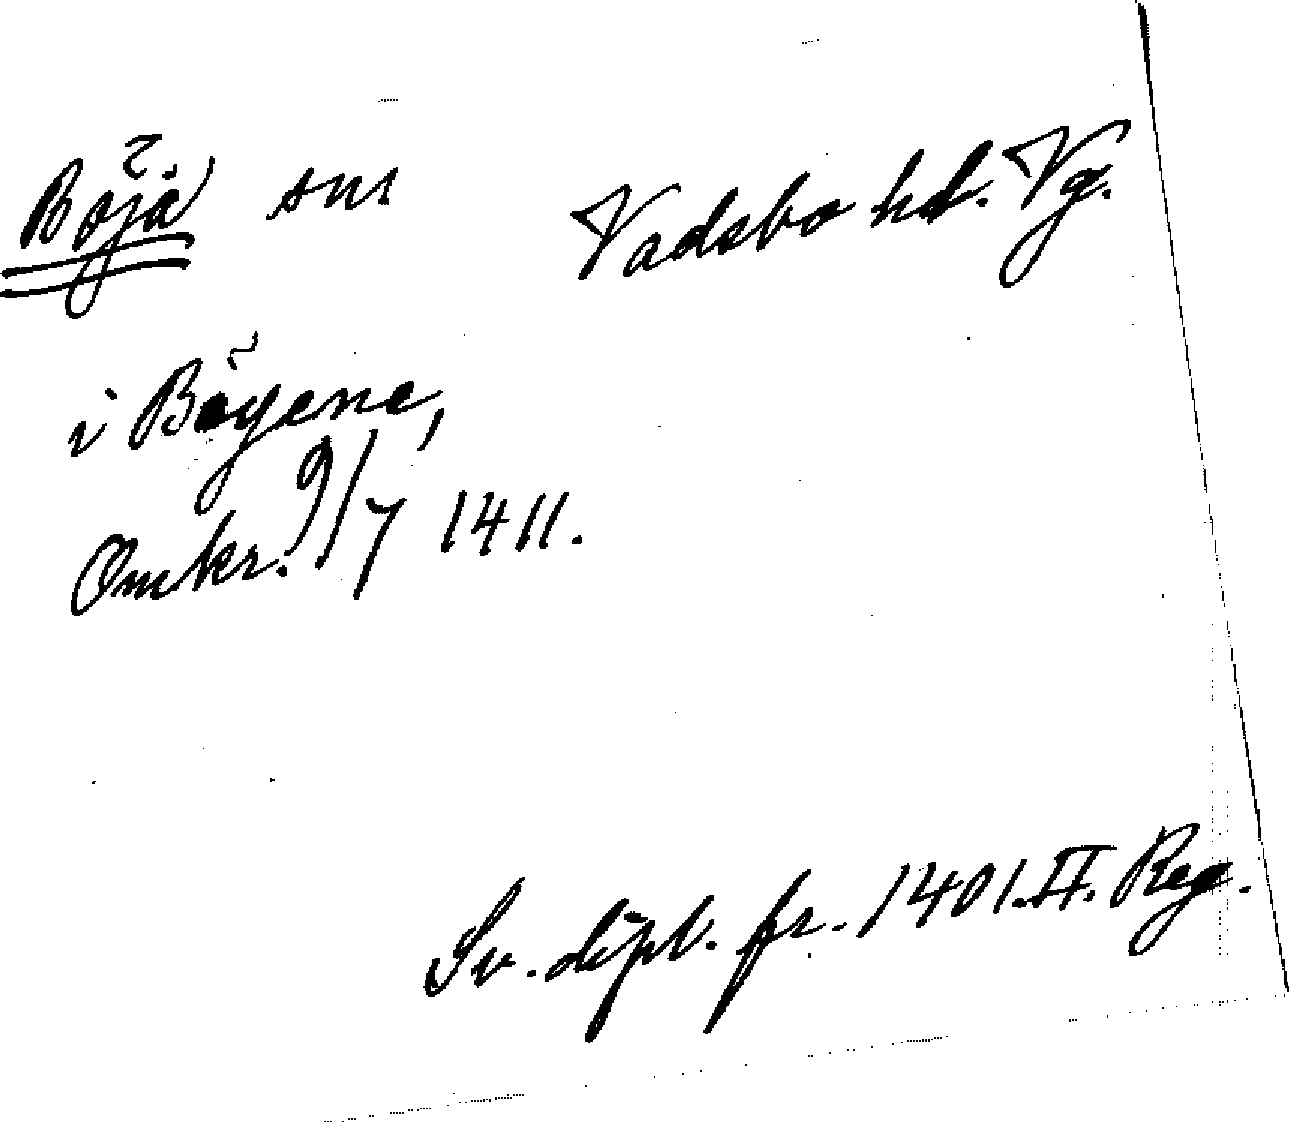 Böjä sns Vadsbo hd. Vg.
i Böyene,
Omkr. 9/7 1411.
Sv. dipl. fr. 1401. II. Reg.